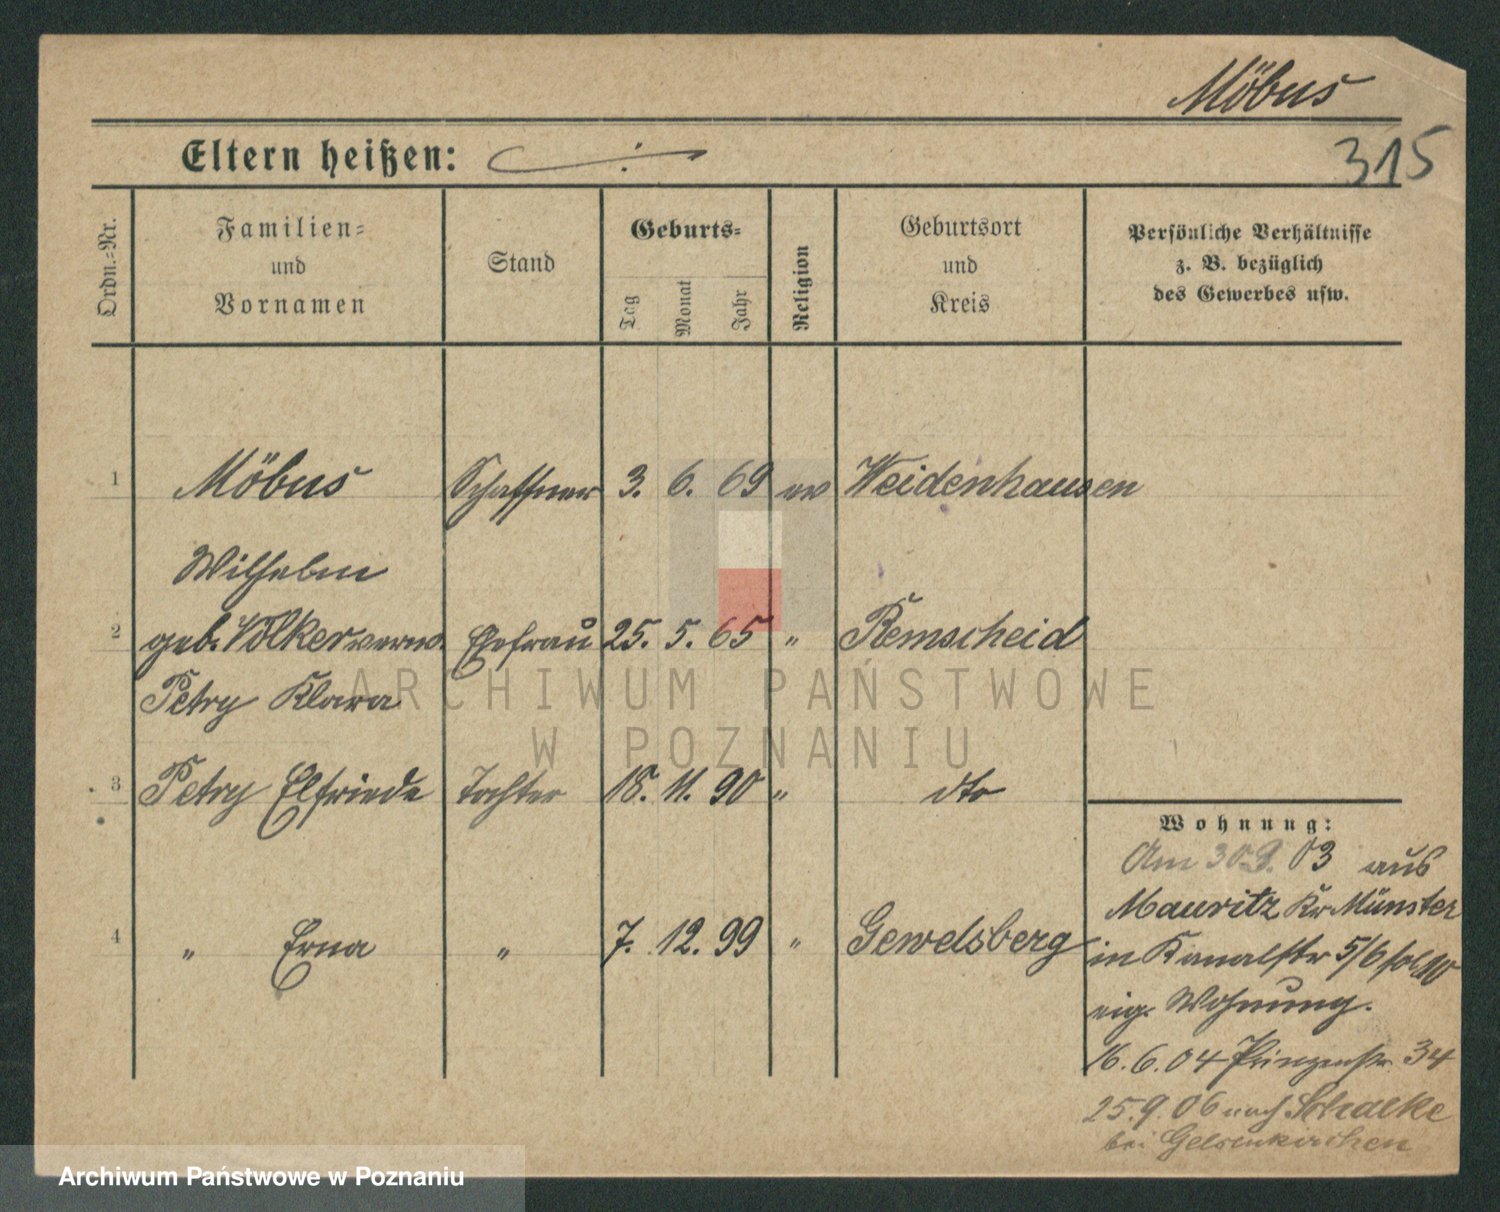 Möbus
315
Eltern heißen:
Ordn.-Nr.
Familien- und Vornamen
Stand
Geburts-
Tag
Monat
Jahr
Religion
Geburtsort und Kreis
Persönliche Verhältnisse
z. B. bezüglich
des Gewerbes usw.
1 Möbus Schaffner 3. 6. 69 ev Weidenhausen
Wilhelm
2 geb. Völker verw. Ehefrau 25. 5. 65 " Remscheid
Petry Klara
3 Petry Elfriede Tochter 18. 11. 90 " dto
4 " Erna " 7. 12. 99 " Gewelsberg
Wohnung:
Am 30.9.03 aus
Mauritz Kr Münster
in Kanalstr 5/6
eig. Wohnung.
16.6.04 Prinzenstr. 34
25.9.06 nach Schalke
bei Gelsenkirchen
ARCHIWUM PAŃSTWOWE
W POZNANIU
Archiwum Państwowe w Poznaniu